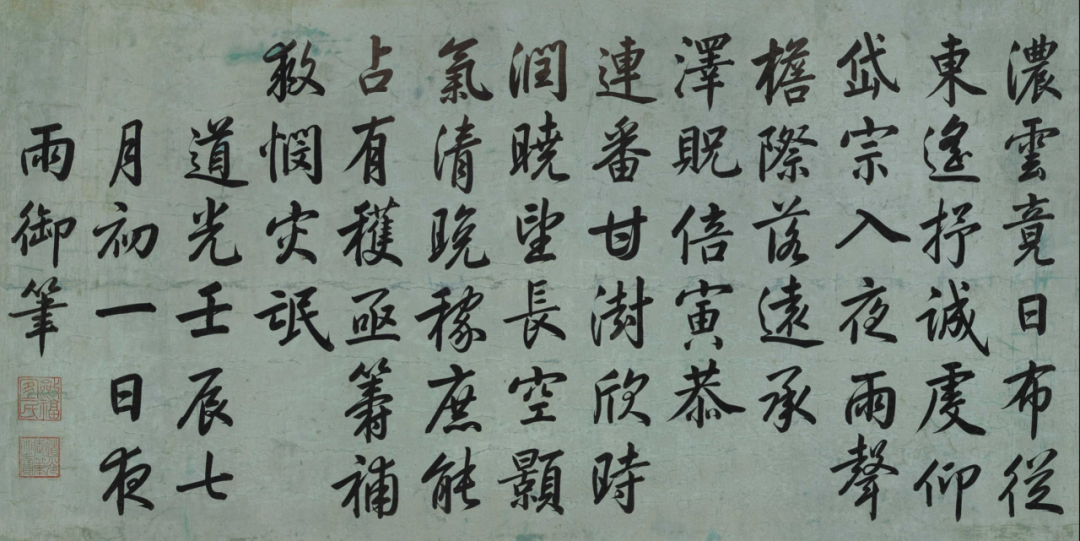 濃雲竟日布從
東遙抒誠虔仰
岱宗入夜雨聲
檐際落遠承
澤貺倍寅恭
連番甘澍欣時
潤曉望長空顥
氣清晚稼庶能
占有穫亟籌補
救憫灾氓
道光壬辰七
月初一日夜
雨御筆